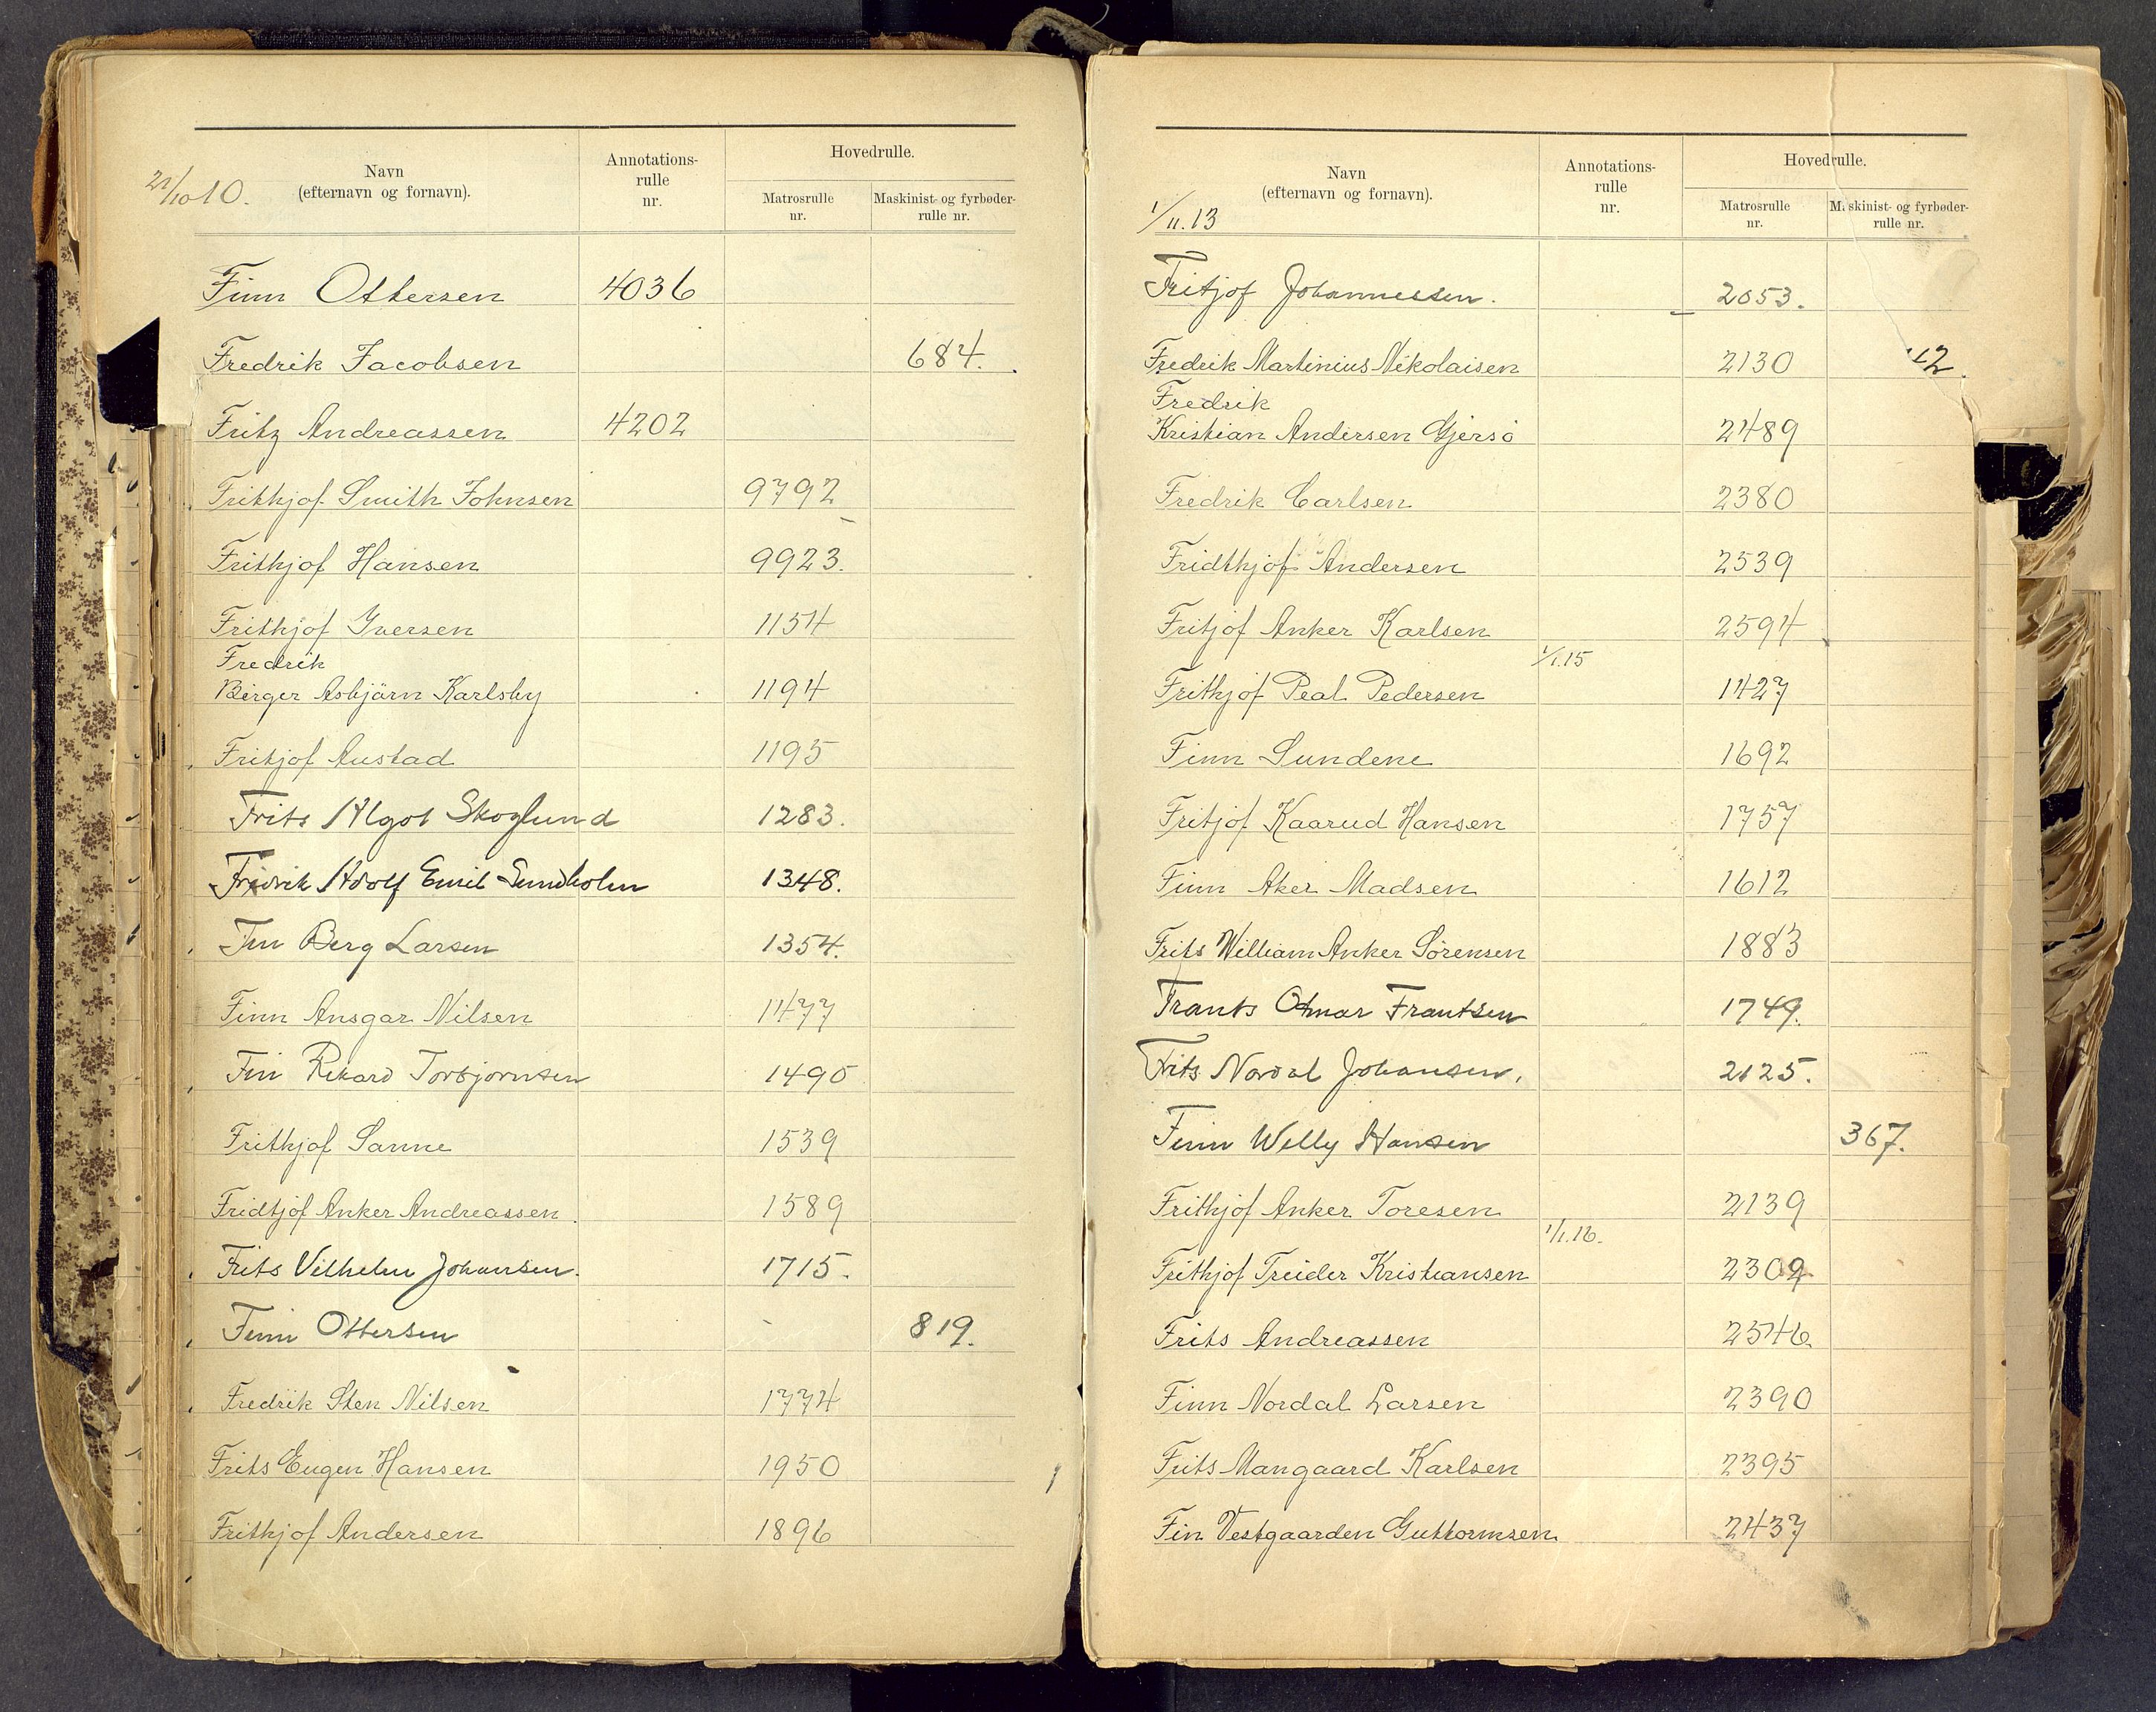 21/10 10.
Navn
(efternavn og fornavn).
Annotations-
rulle
nr.
Hovedrulle.
Matrosrulle
nr.
Maskinist- og fyrbøder-
rulle nr.
Finn Ottersen 4036
Fredrik Jacobsen 684.
Fritz Andreassen 4202
Frithjof Smith Johnsen 9792
Frithjof Hansen 9923.
Frithjof Iversen 1154
Fredrik
Birger Asbjärn Karlsby 1194
Fritjof Austad 1195
Frits Algot Skoglund 1283.
Fredrik Adolf Emil Sundholm 1348.
Fin Berg Larsen 1354.
Finn Ansgar Nilsen 1477
Fin Rikard Torbjørnsen 1490
Frithjof Sanne 1539
Fridtjof Anker Andreassen. 1589
Frits Vilhelm Johansen. 1715.
Finn Ottersen 819.
Fredrik Sten Nilsen 1774
Frits Eugen Hansen 1950
Frithjof Andersen 1896
1/11.13
Navn
(efternavn og fornavn).
Annotations-
rulle
nr.
Hovedrulle.
Matrosrulle
nr.
Maskinist- og fyrbøder-
rulle nr.
Fritjof Johannessen. 2053.
Fredrik Martinius Nikolaisen 2130
Fredrik
Kristian Andersen Gjersö 2489
Fredrik Carlsen 2380
Fridthjof Andersen 2539
Fritjof Anker Karlsen 2594
1/1.15
Frithjof Peal Pedersen 1427
Finn Sundene 1692
Fritjof Kaarud Hansen 1757
Finn Aker Madsen 1612
Frits William Anker Sörensen 1883
Frants Otmar Frantsen 1749.
Frits Nordal Johansen. 2125.
Finn Welly Hansen 367.
Frithjof Anker Toresen 2139
1/1.16.
Frithjof Treider Kristiansen 2302
Frits Andreassen 2546
Finn Nordal Larsen 2390
Frits Mangaard Karlsen 2395
Fin Vestgaarden Guttormsen 2437